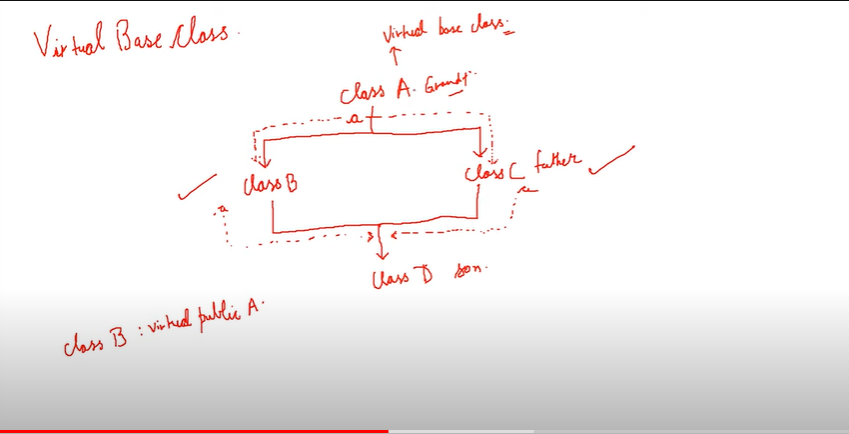 Virtual Base Class.
Virtual base class.
Class A. Grandf.
a
Class B
Class C father
a
a
Class D son.
class B : virtual public A.